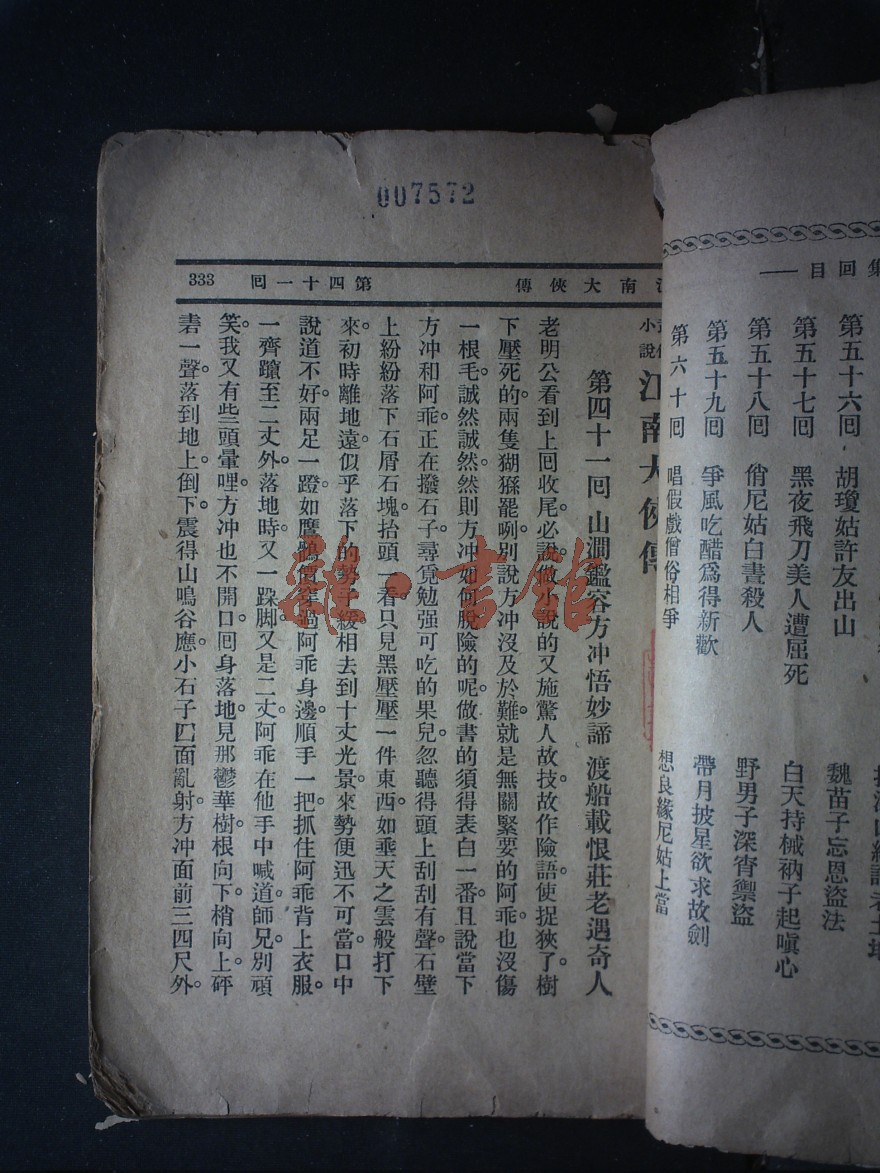 007572
江南大俠傳
第四十一囘
333
小說
江南大俠傳
第四十一囘 山澗鑑容方冲悟妙諦 渡船載恨莊老遇奇人
老明公看到上囘收尾。必說做小說的又施驚人故技。故作險語。使捉狹了樹
下壓死的兩隻猢猻罷咧。別說方冲沒及於難。就是無關緊要的阿乖。也沒傷
一根毛。誠然誠然。然則方冲如何脫險的呢。做書的須得表白一番。且說當下
方冲和阿乖。正在撥石子。尋覓勉强可吃的果兒。忽聽得頭上刮刮有聲。石壁
上紛紛落下石屑石塊。抬頭一看。只見黑壓壓一件東西。如垂天之雲般打下
來。初時離地遠。似乎落下的勢子緩。相去到十丈光景。來勢便迅不可當。口中
說道不好。兩足一蹬。如鷹鸇價。過阿乖身邊。順手一把抓住阿乖背上衣服。
一齊躥至二丈外。落地時又一跺脚。又是二丈。阿乖在他手中喊道。師兄。別頑
笑。我又有些頭暈哩。方冲也不開口。囘身落地。見那鬱華樹。根向下。梢向上。砰
砉一聲。落到地上倒下。震得山鳴谷應。小石子四面亂射。方冲面前三四尺外。
雜·書館
集回目
第五十六囘 胡瓊姑許友出山 魏苗子忘恩盜法
第五十七囘 黑夜飛刀美人遭屈死 白天持械衲子起嗔心
第五十八囘 俏尼姑白晝殺人 野男子深宵禦盜
第五十九囘 爭風吃醋爲得新歡 帶月披星欲求故劍
第六十囘 唱假戲僧俗相爭 想良緣尼姑上當